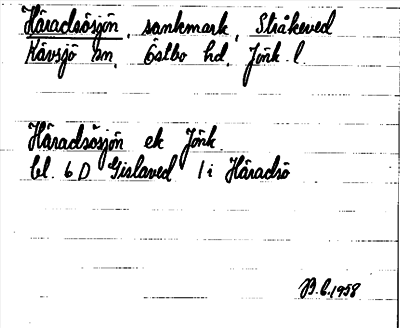 Häradsösjön, sankmark, Stråkeved
Kävsjö sn, Östbo hd, Jönk. l.
Häradsösjön ek Jönk.
bl. 6 D Gislaved 1 i Häradsö
B.b. 1958